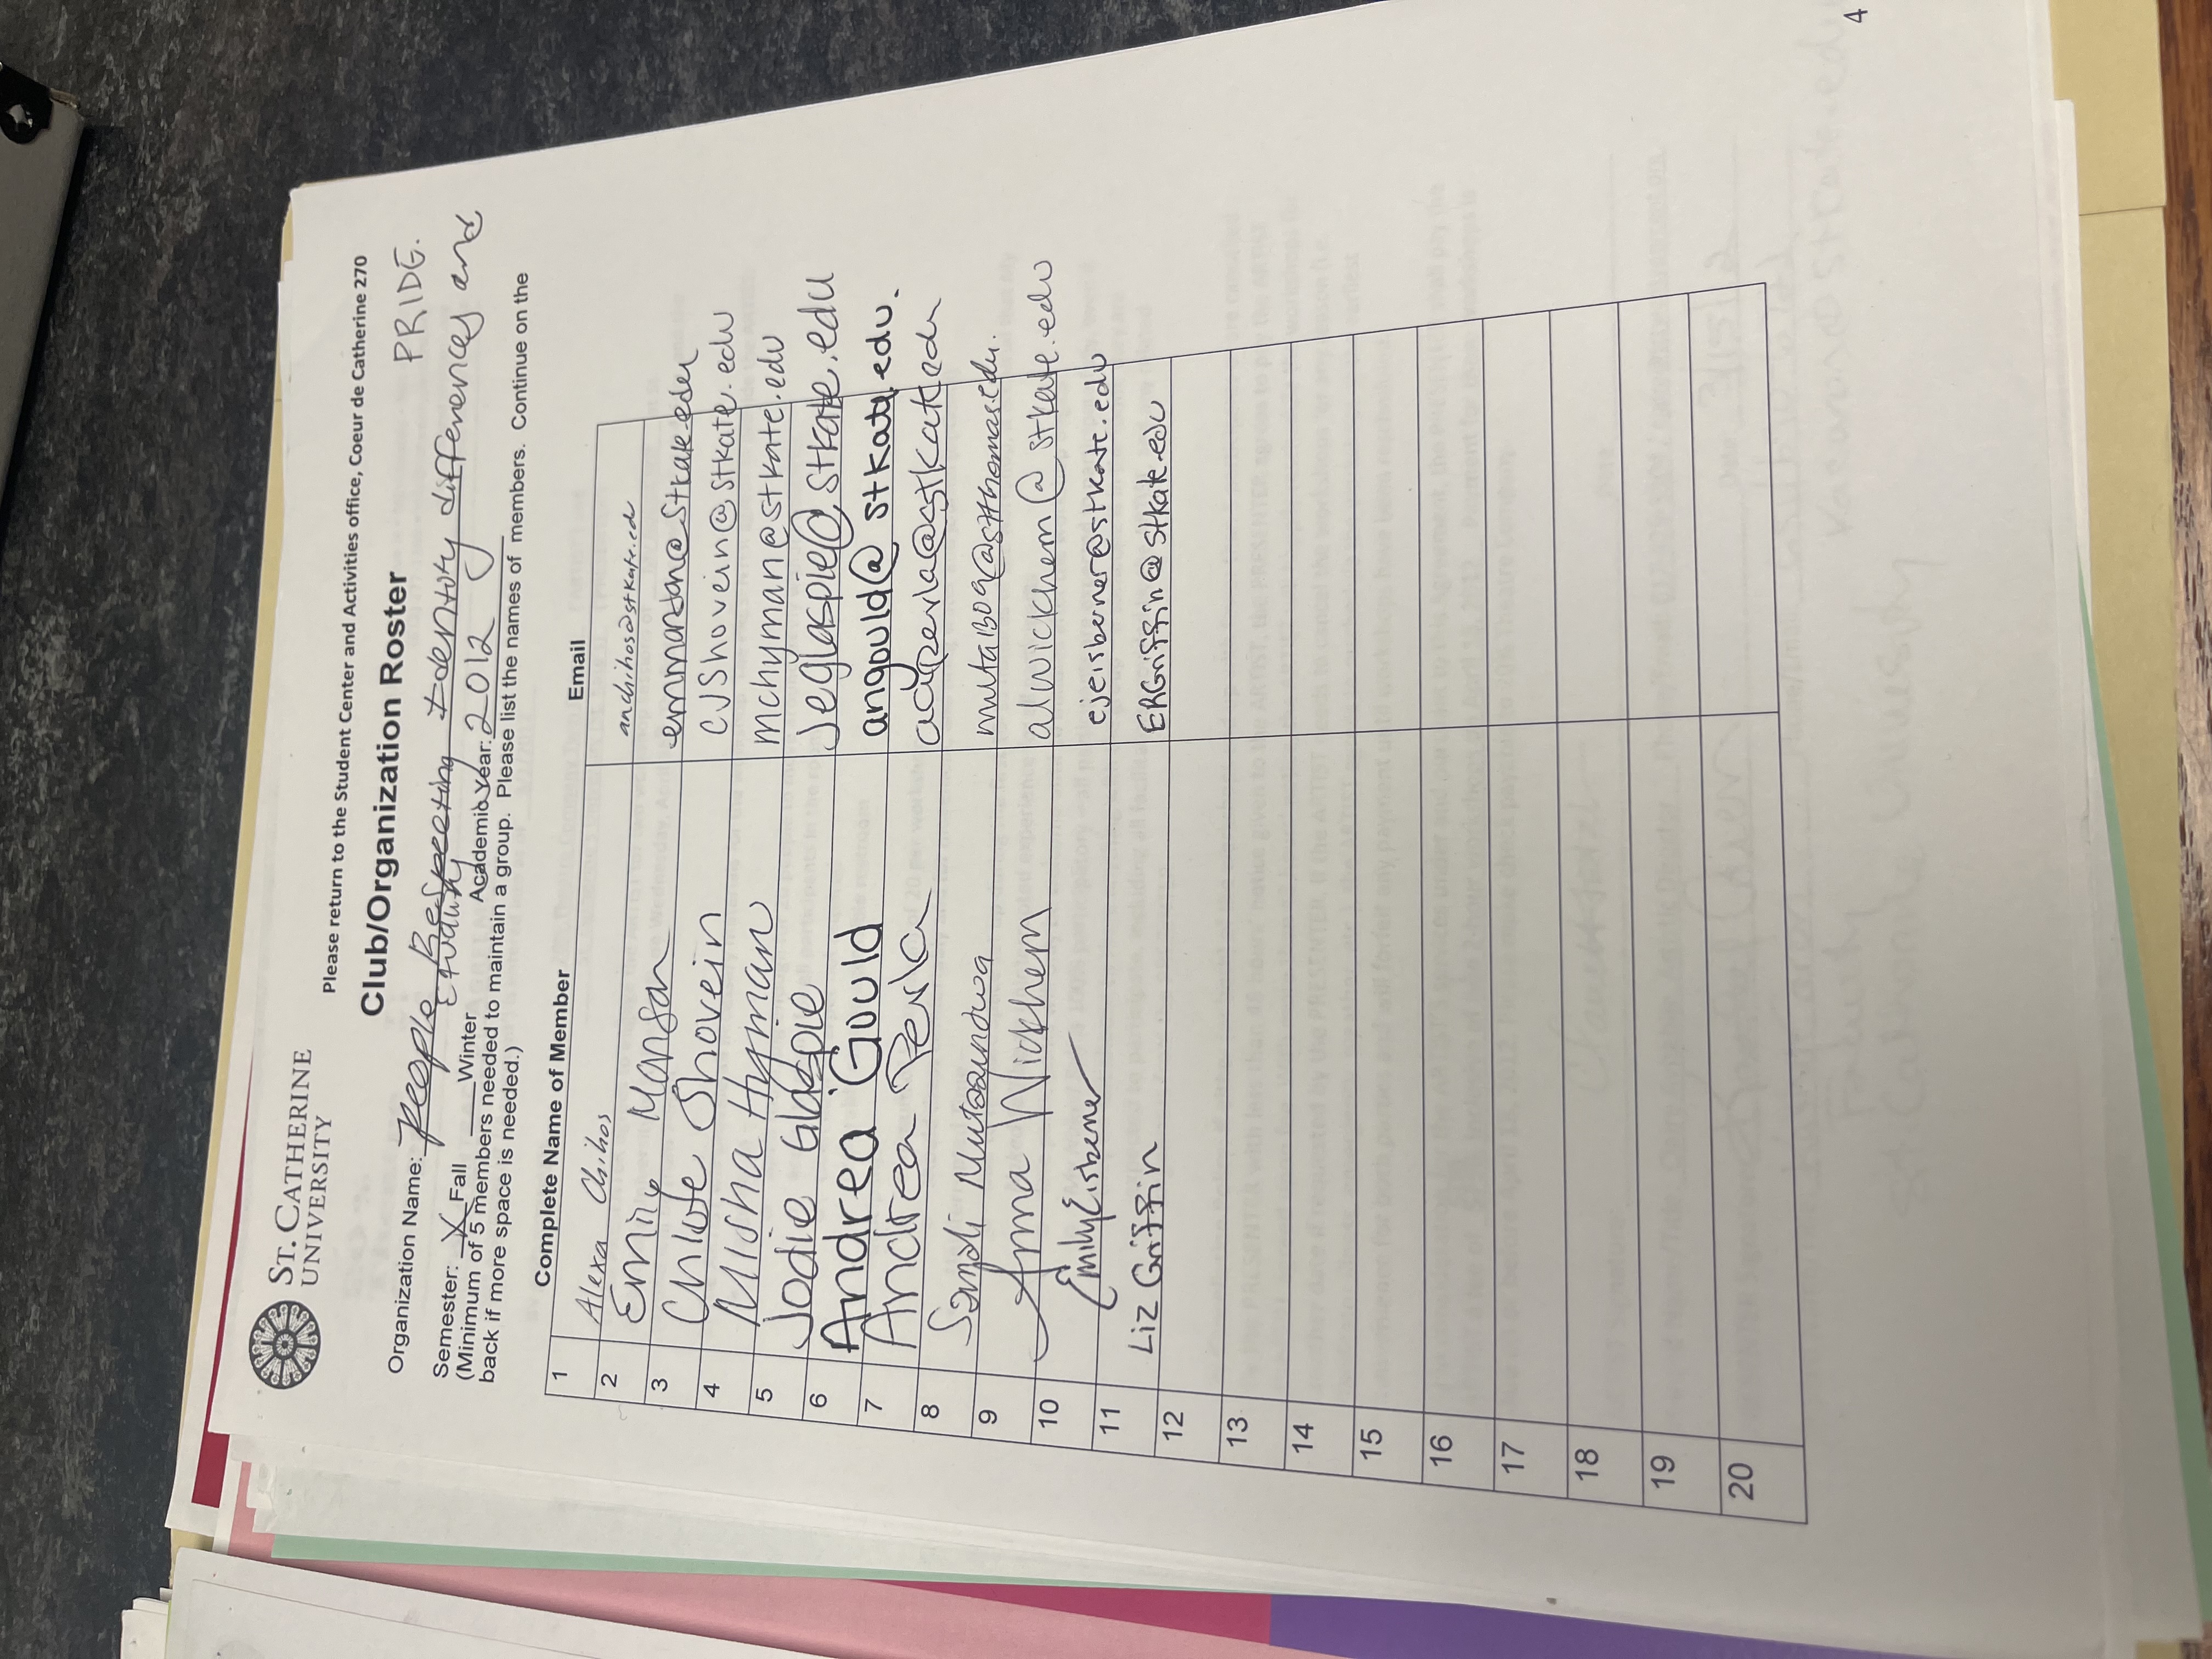 ST. CATHERINE
UNIVERSITY
Please return to the Student Center and Activities office, Coeur de Catherine 270
Club/Organization Roster
PRIDE.
Organization Name: People Respecting Identity differences and
Equality
Semester: X Fall ____Winter Academic Year: 2012
(Minimum of 5 members needed to maintain a group. Please list the names of members. Continue on the
back if more space is needed.)
Complete Name of Member Email
1 Alexa Chihos anchihos@stkate.edu
2 Emily Manson emmanson@stkate.edu
3 Chloe Shovein CJShovein@stkate.edu
4 Misha Hyman mchyman@stkate.edu
5 Jodie Glaspie Jeglaspie@stkate.edu
6 Andrea Gould angould@stkate.edu.
7 Andrea Perla
8 Sandi
9 Anna Wickhem alwickhem@stkate.edu
10 Emily Eisbener ejeisbener@stkate.edu
11 Liz Griffin ERGriffin@stkate.edu
12
13
14
15
16
17
18
19
20
4